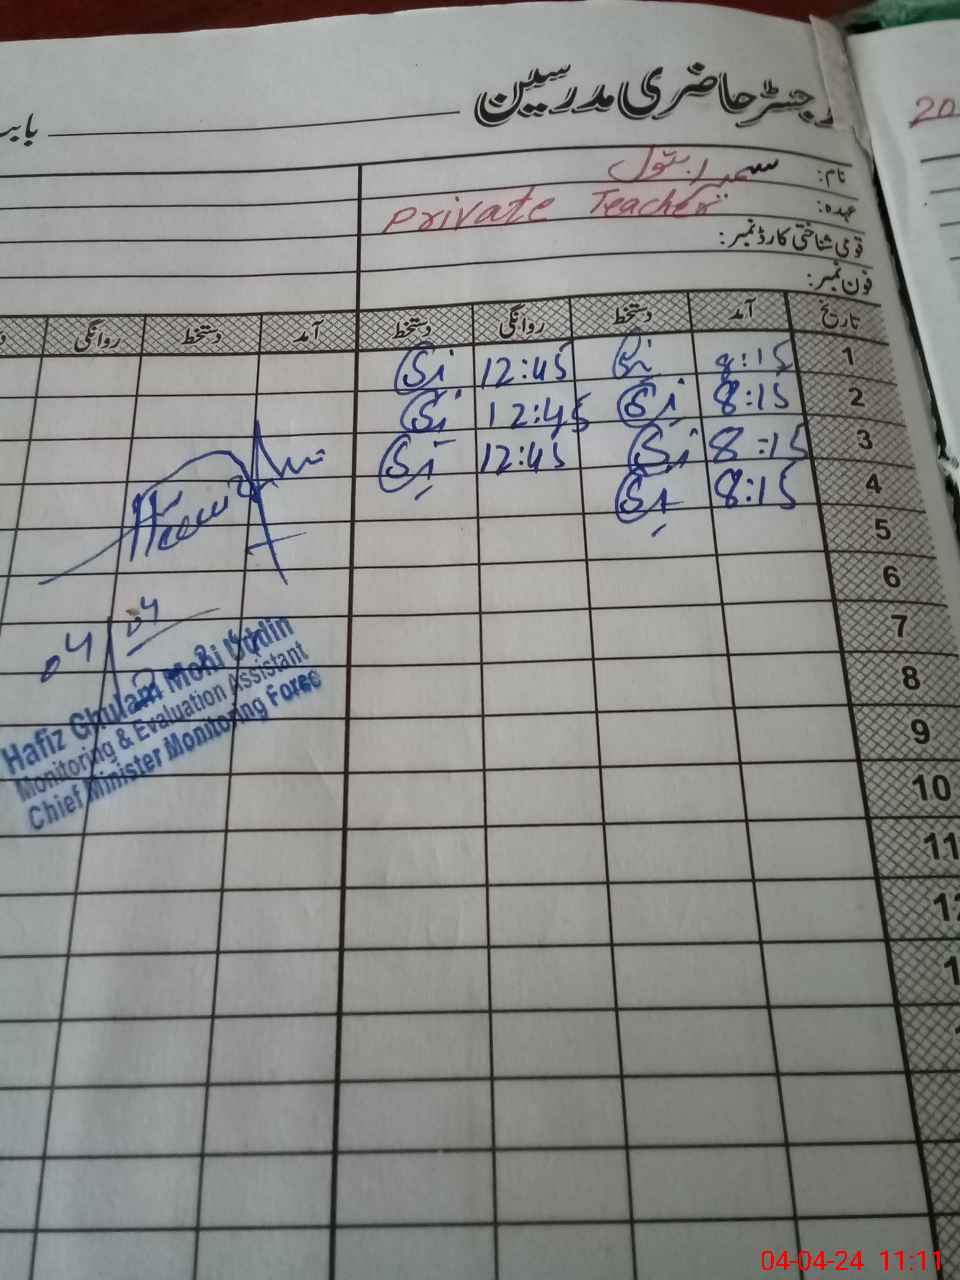 رجسٹر حاضری مدرسین
بابت
20
نام: سمیرا بتول
عہدہ: Private Teacher
قومی شناختی کارڈ نمبر:
فون نمبر:
تاریخ آمد دستخط روانگی دستخط آمد دستخط روانگی
1 8:15 12:45
2 8:15 12:45
3 8:15 12:45
4 8:15
5
6
7
8
9
10
11
12
04/04
Hafiz Ghulam Mohi Uddin
Monitoring & Evaluation Assistant
Chief Minister Monitoring Force
04-04-24 11:11